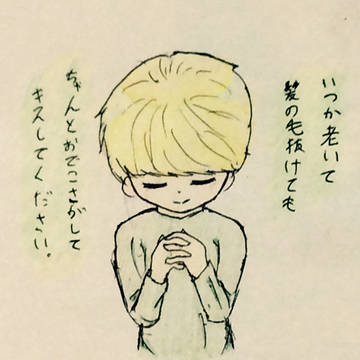 いつか老いて
髪の毛抜けても
ちゃんとおでこさがして
キスしてください。